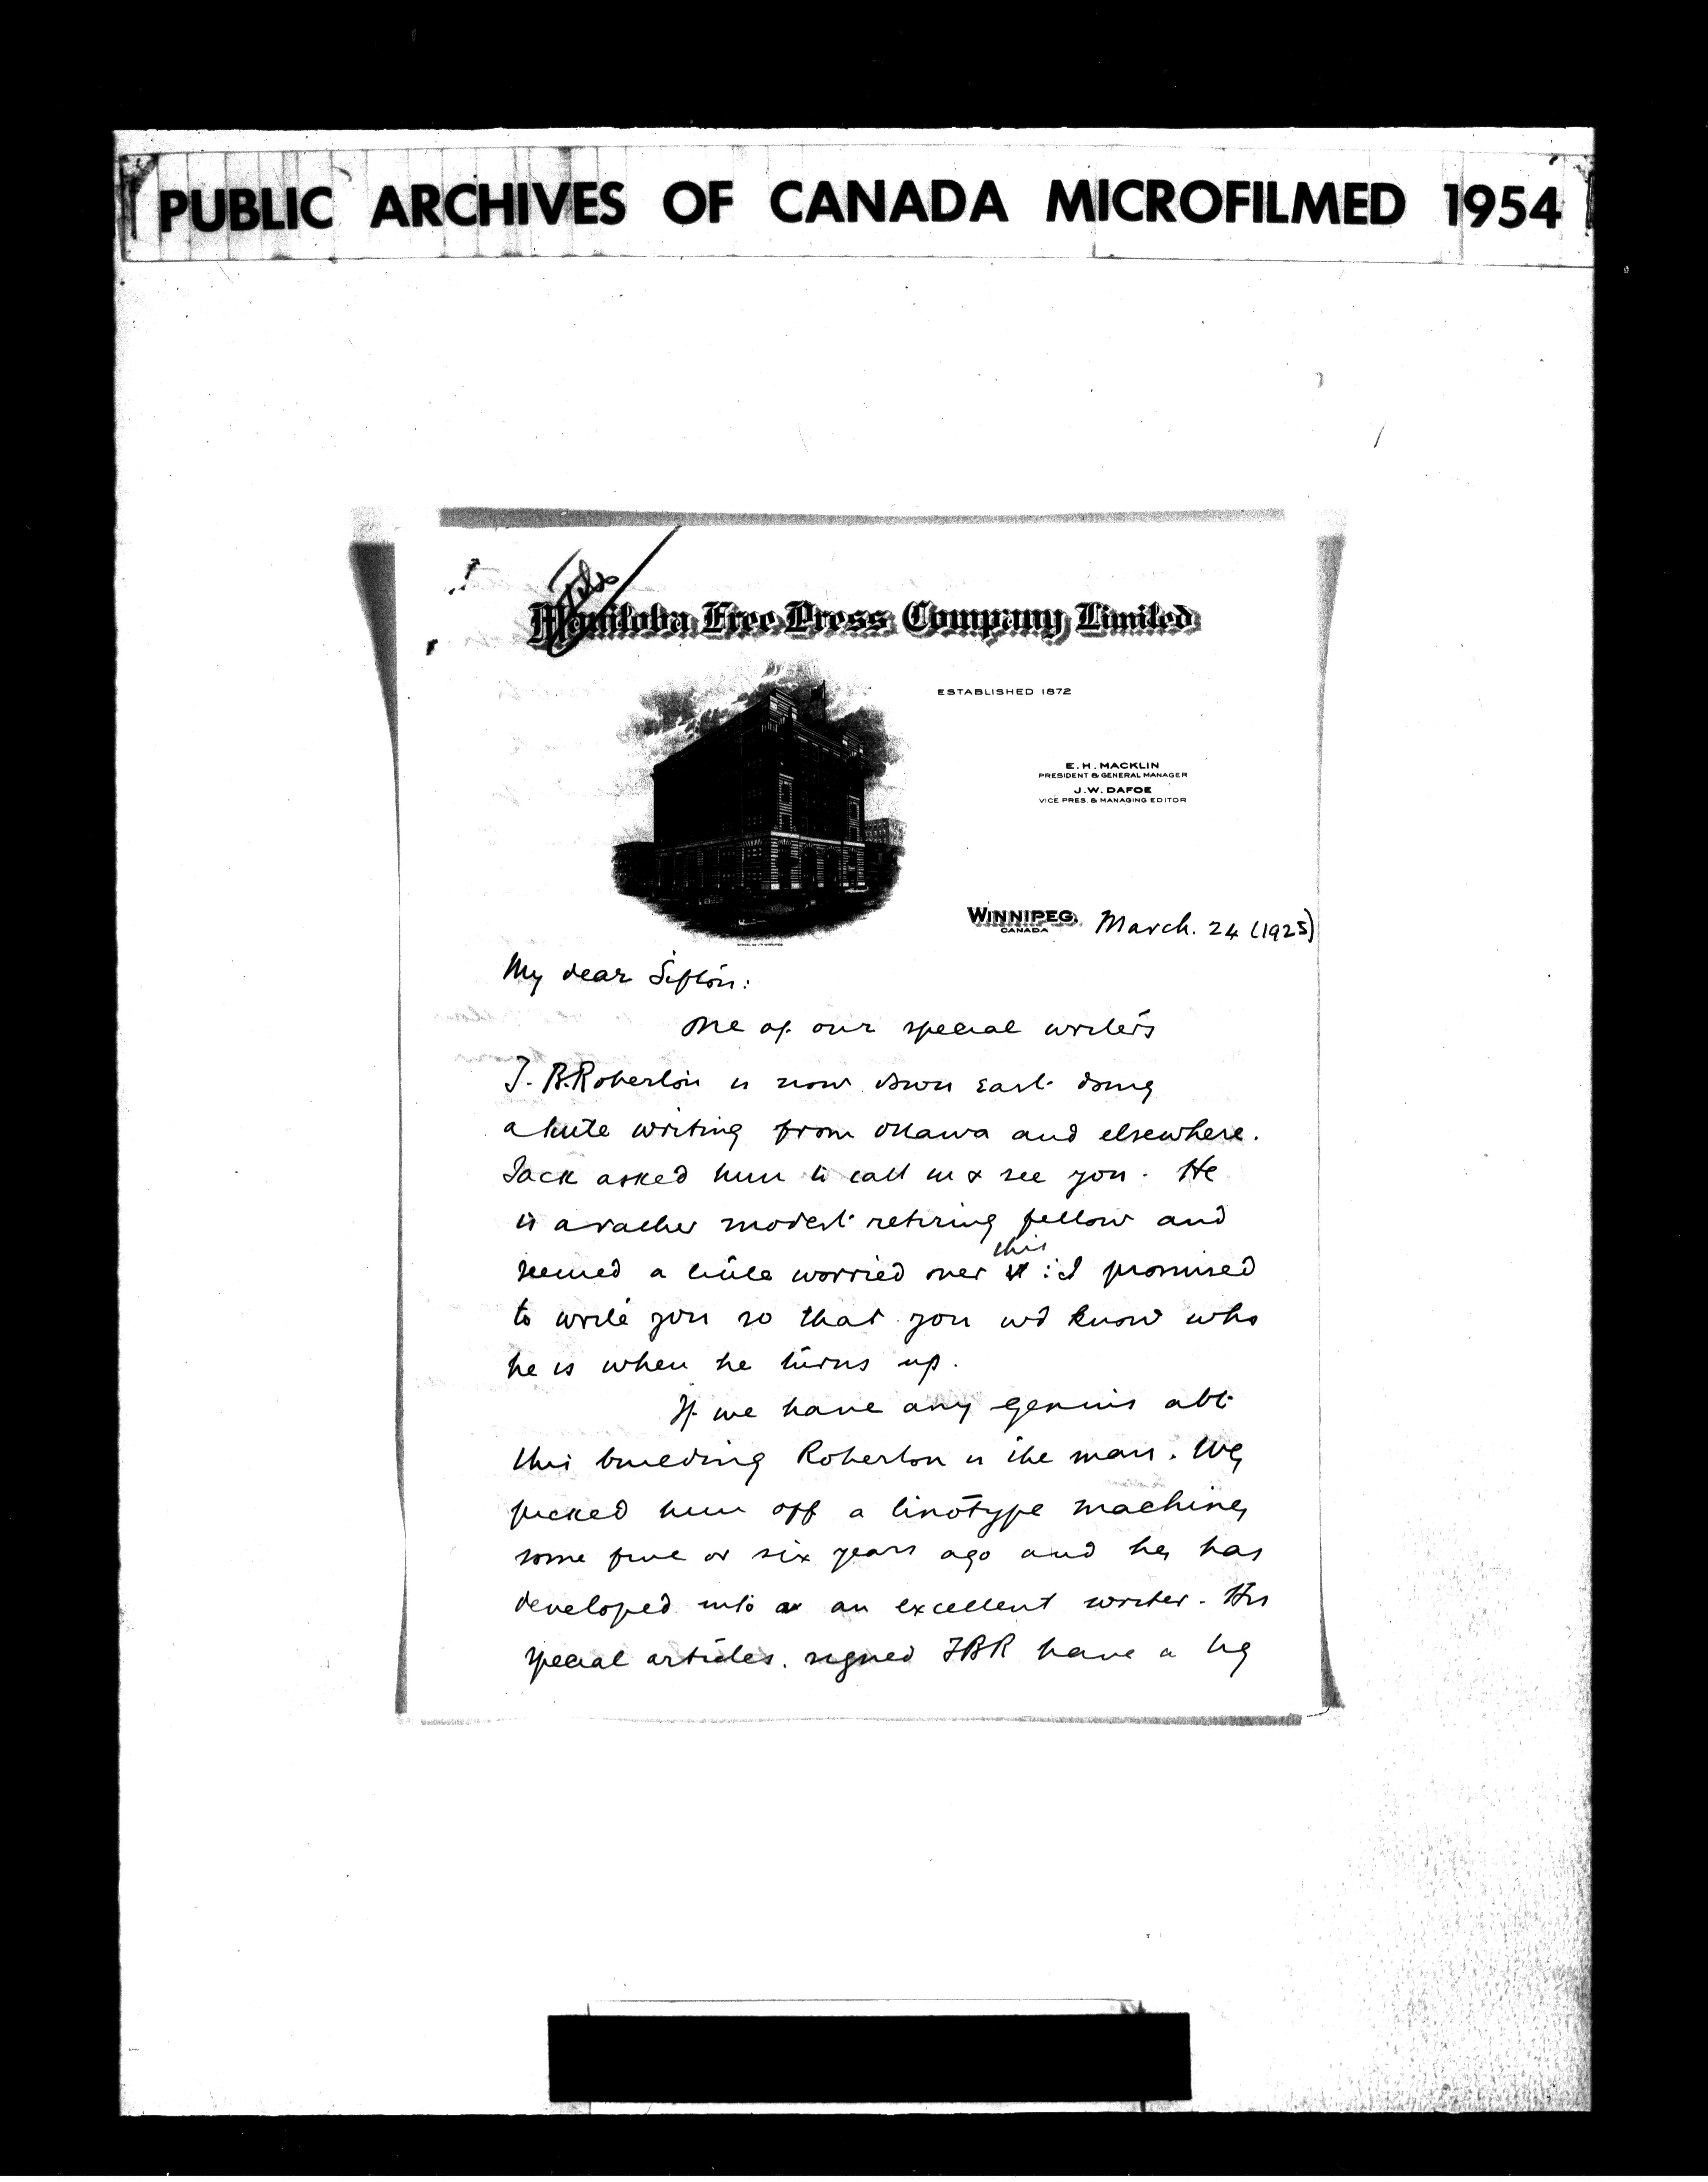 PUBLIC ARCHIVES OF CANADA MICROFILMED 1954
Manitoba Free Press Company Limited
ESTABLISHED 1872
E. H. MACKLIN
PRESIDENT & GENERAL MANAGER
J. W. DAFOE
VICE PRES. & MANAGING EDITOR
WINNIPEG, March. 24 (1925)
CANADA
My dear Sifton:
One of our special writers
T. B. Roberton is now down East doing
a little writing from Ottawa and elsewhere.
Jack asked him to call in & see you. He
is a rather modest retiring fellow and
this
seemed a little worried over it : I promised
to write you so that you wd know who
he is when he turns up.
If we have any genius abt
this building Roberton is the man. We
picked him off a linotype machine
some five or six years ago and he has
developed into a an excellent writer. His
special articles. signed TBR have a big